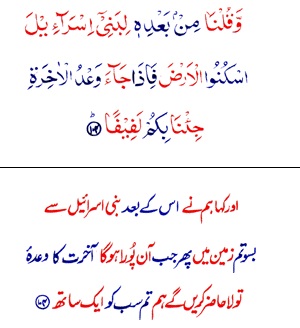 وَّقُلْنَا مِنْۢ بَعْدِهٖ لِبَنِیْۤ اِسْرَآءِیْلَ
اسْكُنُوا الْاَرْضَ فَاِذَا جَآءَ وَعْدُ الْاٰخِرَةِ
جِئْنَا بِكُمْ لَفِیْفًاؕ ۝۱۰۴
اور کہا ہم نے اس کے بعد بنی اسرائیل سے
بسو تم زمین میں پھر جب آن پُورا ہوگا آخرت کا وعدۂ
تو لا حاضر کریں گے ہم تم سب کو ایک ساتھ ۝۱۰۴